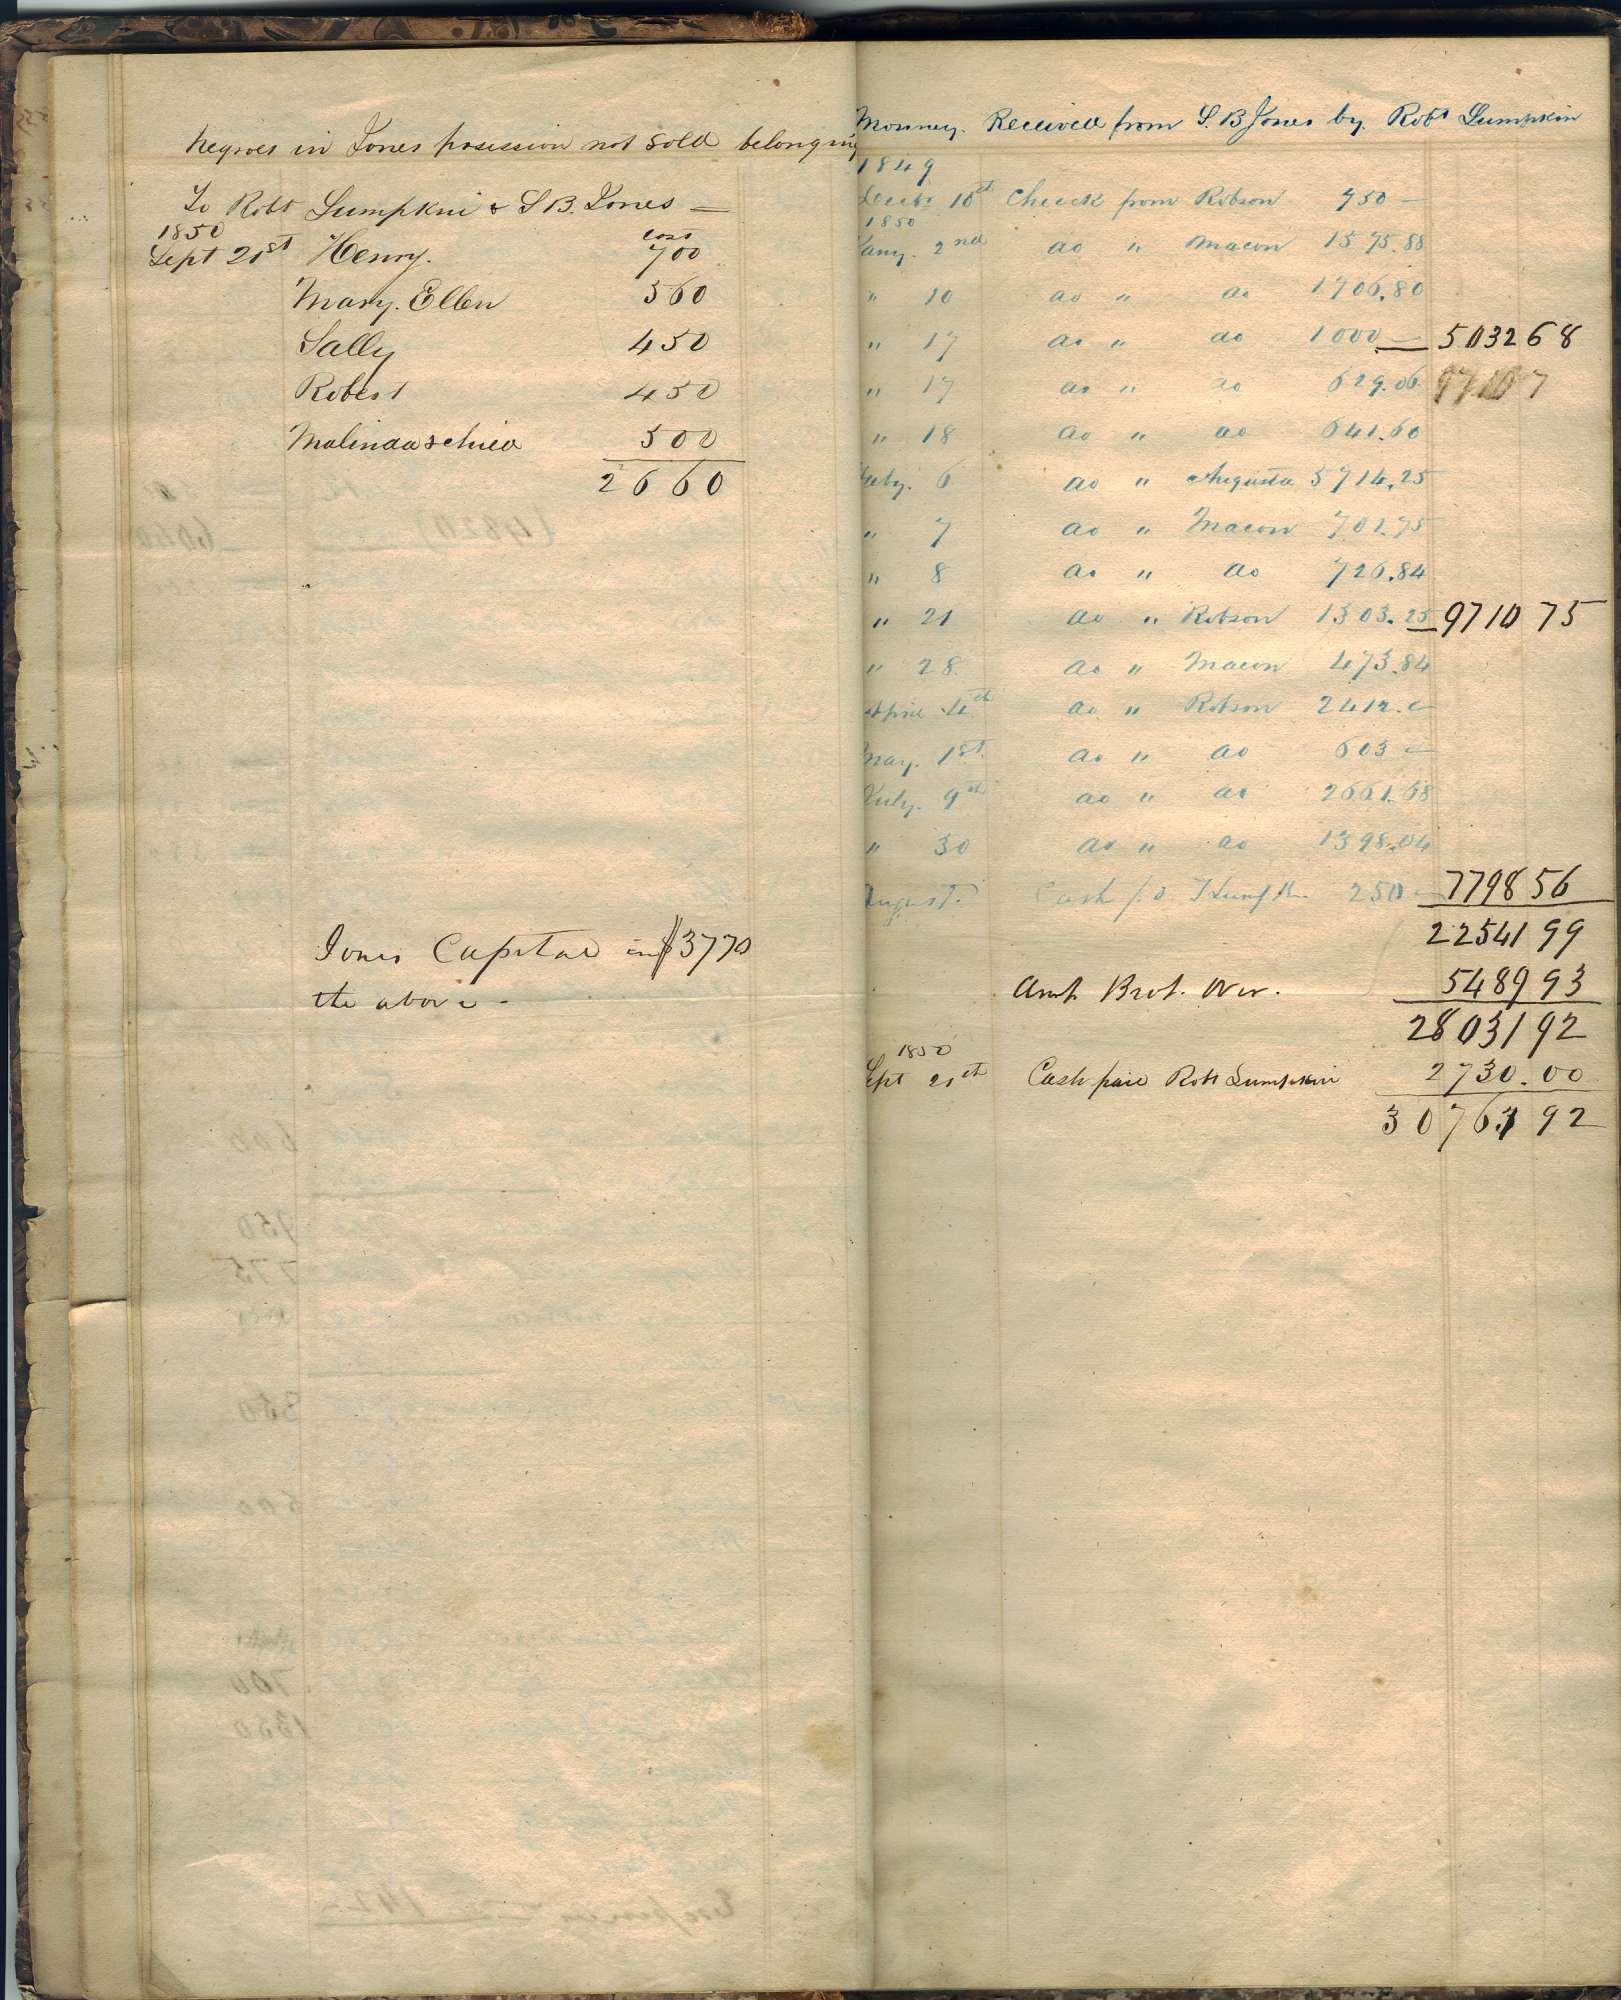 Negroes in Jones posession not sold belonging
To Robt Lumpkin & S B. Jones —
1850 cost
Sept 21st Henry. 700
Mary. Ellen 560
Sally 450
Robert 450
Malinda & Chied 500
2660
Jones Capital in $3770
the above -
Monney. Received from S. B Jones by. Robt Lumpkin
1849
Decbr 10th Cheeck from Robson 750 —
1850
Jany. 2nd do " Macon 1575.88
" 10 do " do 1706.80
" 17 do " do 1000 — 5032 68
" 17 do " do 629.06
" 18 do " do 641.60
Feby. 6 do " Augusta 5714.25
" 7 do " Macon 701.75
" 8 do " do 726.84
" 21 do " Robson 1303.25 — 9710 75
" 28. do " Macon 473.84
April 4th do " Robson 2412. —
May. 1st do " do 603 —
July. 9th do " do 2661.68
" 30 do " do 1398.04
August. Cash 250 — 7798 56
22541 99
Amt Brot. Over. 5489 93
28031 92
1850
Sept 21th Cash paid Robt Lumpkin 2730.00
30761 92